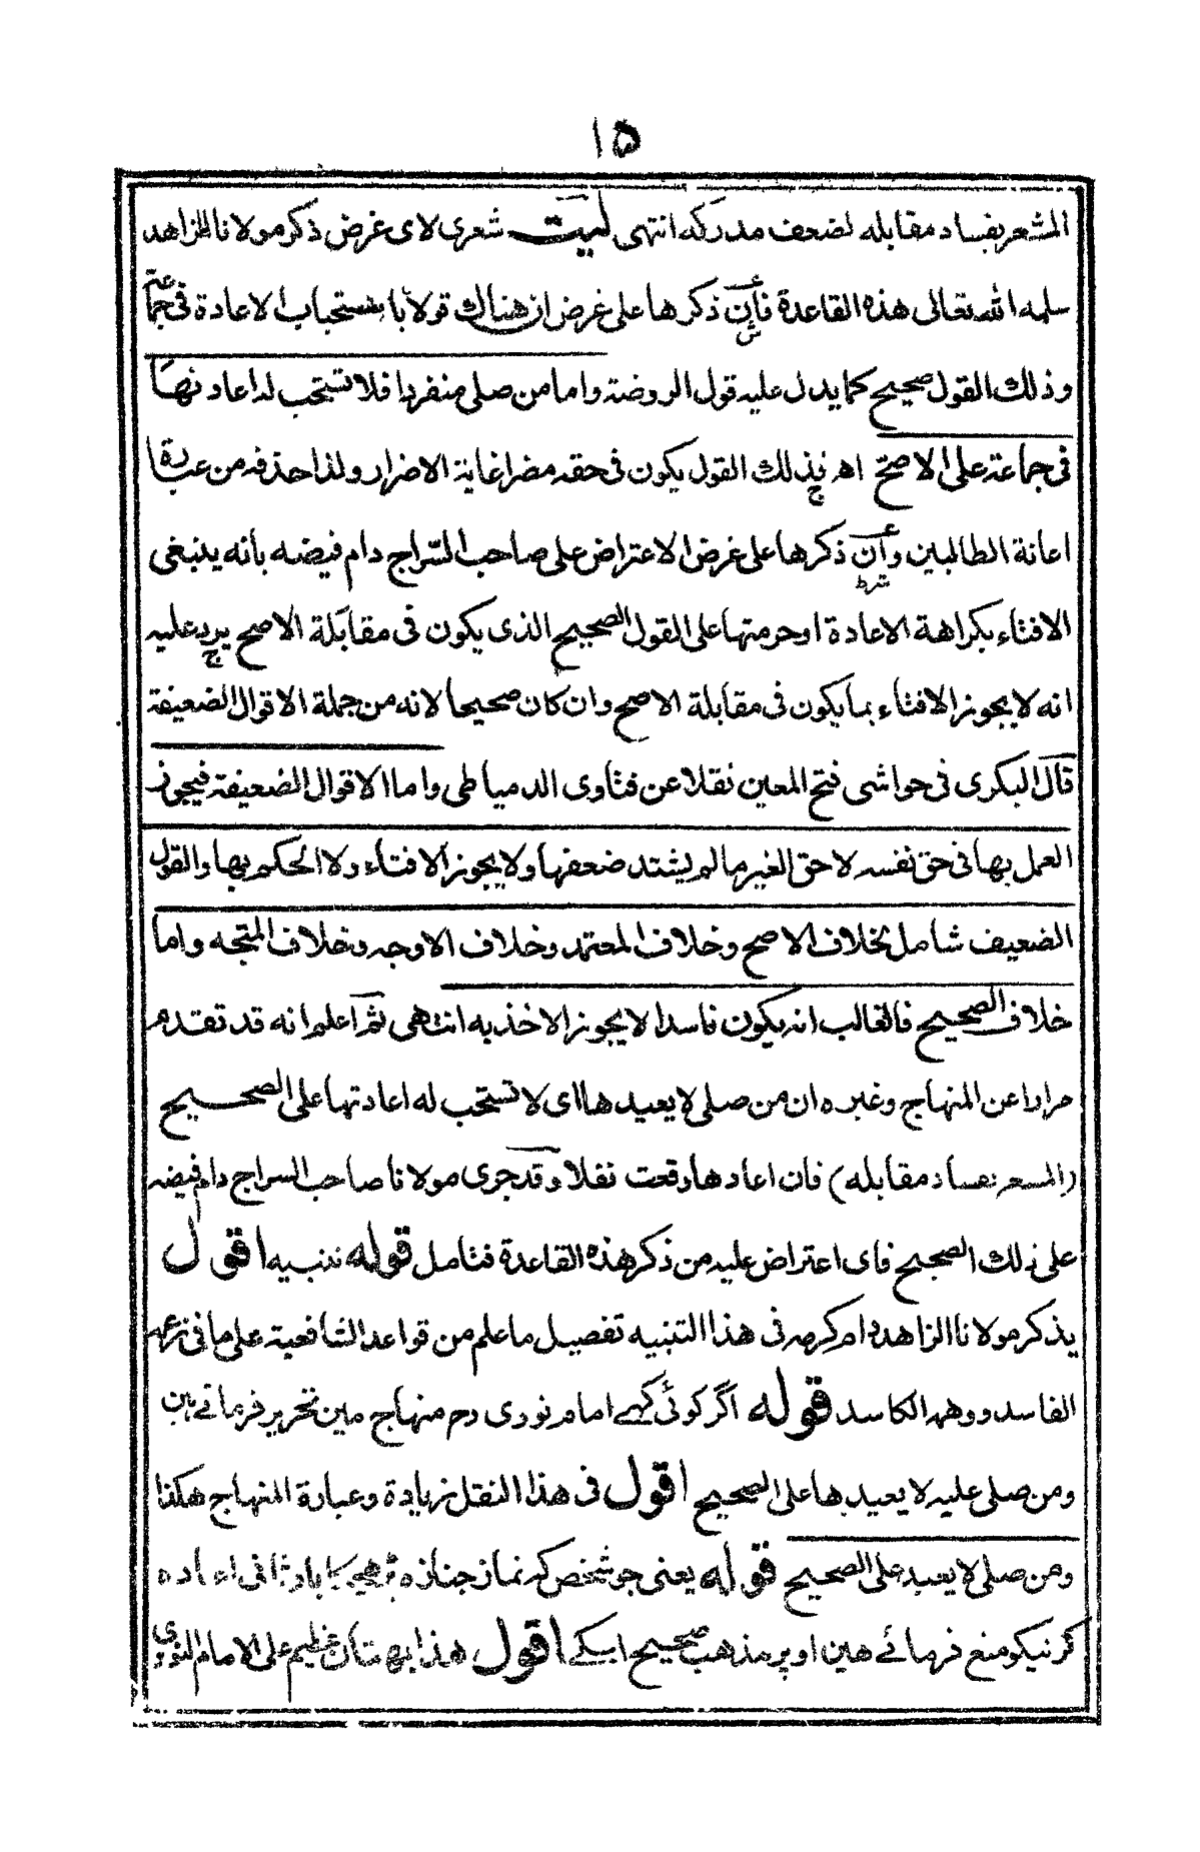 ١٥
المشعر بفساد مقابله لضعف مدركه انتهى ليت شعرى لاى غرض ذكر مولانا الزاهد
سلمه الله تعالى هذه القاعدة فأن ذكرها على غرض ان هناك قولا باستحباب الاعادة فى جماعة
وذلك القول صحيح كما يدل عليه قول الروضة واما من صلى منفردا فلا تستحب له اعادتها
فى جماعة على الاصح اه فذلك القول يكون فى حقه مضرا غاية الاضرار ولذا حذفه من عبارة
اعانة الطالبين وأن ذكرها على غرض الاعتراض على صاحب السّراج دام فيضه بانه ينبغى
الافتاء بكراهة الاعادة او حرمتها على القول الصحيح الذى يكون فى مقابلة الاصح يرد عليه
انه لا يجوز الافتاء بما يكون فى مقابلة الاصح وان كان صحيحا لانه من جملة الاقوال الضعيفة
قال البكرى فى حواشى فتح المعين نقلا عن فتاوى الدمياطى واما الاقوال الضعيفة فيجوز
العمل بها فى حق نفسه لا حق الغير ما لم يشتد ضعفها ولا يجوز الافتاء ولا الحكم بها والقول
الضعيف شامل بخلاف الاصح وخلاف المعتمد وخلاف الاوجه وخلاف المتجه واما
خلاف الصحيح فالغالب انه يكون فاسدا لا يجوز الاخذ به انتهى ثم اعلم انه قد تقدم
مرارا عن المنهاج وغيره ان من صلى لا يعيدها اى لا تستحب له اعادتها على الصحيح
(المشعر بفساد مقابله) فان اعادها وقعت نفلا وقد جرى مولانا صاحب السراج دام فيضه
على ذلك الصحيح فاى اعتراض عليه من ذكر هذه القاعدة فتامل قوله تنبيه اقول
يذكر مولانا الزاهد دام كرمه فى هذا التنبيه تفصيل ما علم من قواعد الشافعية على ما فى زعمه
الفاسد ووهمه الكاسد قوله اگر كوئى كہے امام نووى رح منهاج مين تحرير فرماتے ہین
ومن صلى عليه لا يعيدها على الصحيح اقول فى هذا النقل زيادة وعبارة المنهاج هكذا
ومن صلى لا يعيد على الصحيح قوله يعنى جو شخص كہ نماز جنازه پڑھیگا بار ثانى اعاده
كرنيكو منع فرمائے هين اوپر مذهب صحيح اسكے اقول هذا بهتان عظيم على الامام النووى